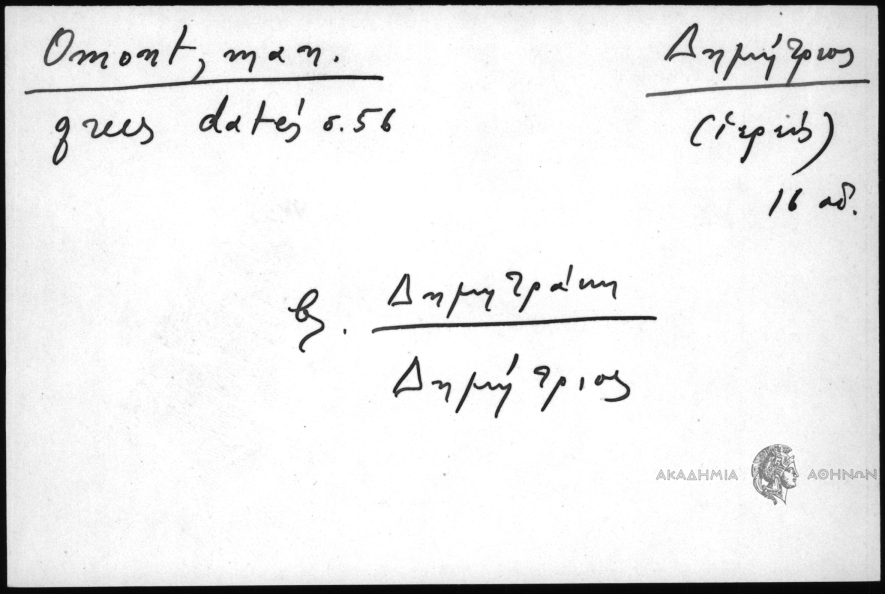 Omont, man.
grecs datés σ. 56
Δημήτριος
(ἱερεύς)
16 αἰ.
β. Δημητράκη
Δημήτριος
ΑΚΑΔΗΜΙΑ ΑΘΗΝΩΝ